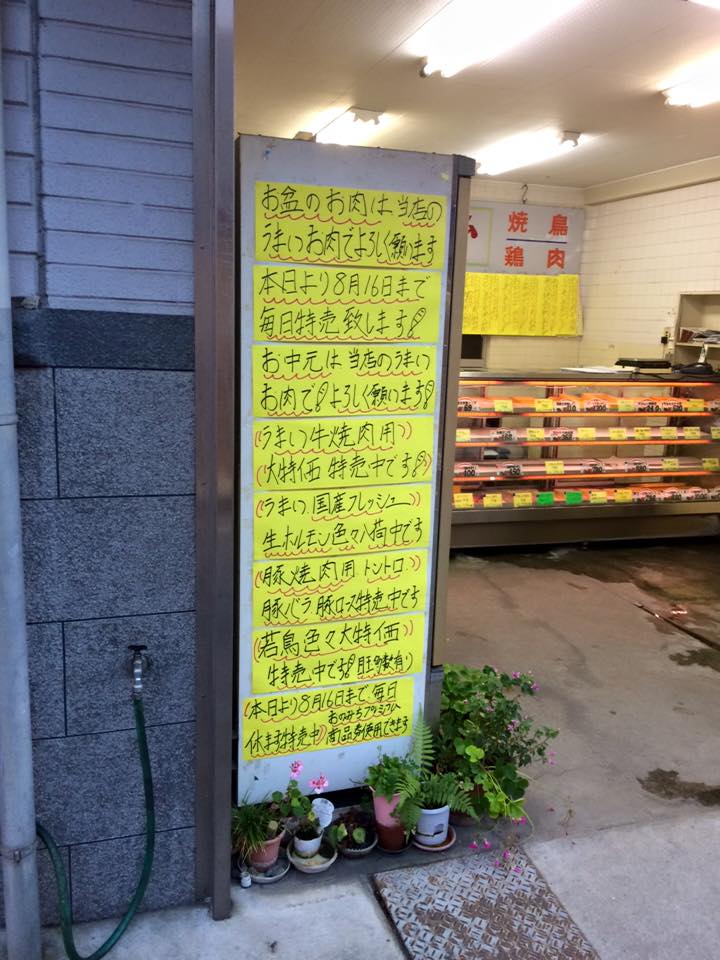 お盆のお肉は当店の
うまいお肉でよろしく願います
本日より8月16日まで
毎日特売致します
お中元は当店のうまい
お肉でよろしく願います
(うまい牛焼肉用)
(大特価 特売中です)
(うまい国産フレッシュ)
生ホルモン色々入荷中です
(豚焼肉用 トントロ)
豚バラ豚ロース特売中です
(若鳥色々大特価
特売中です 有り)
(本日より8月16日まで毎日
おのみちプレミアム
休まず特売中)商品券使用できます
焼鳥
鶏肉